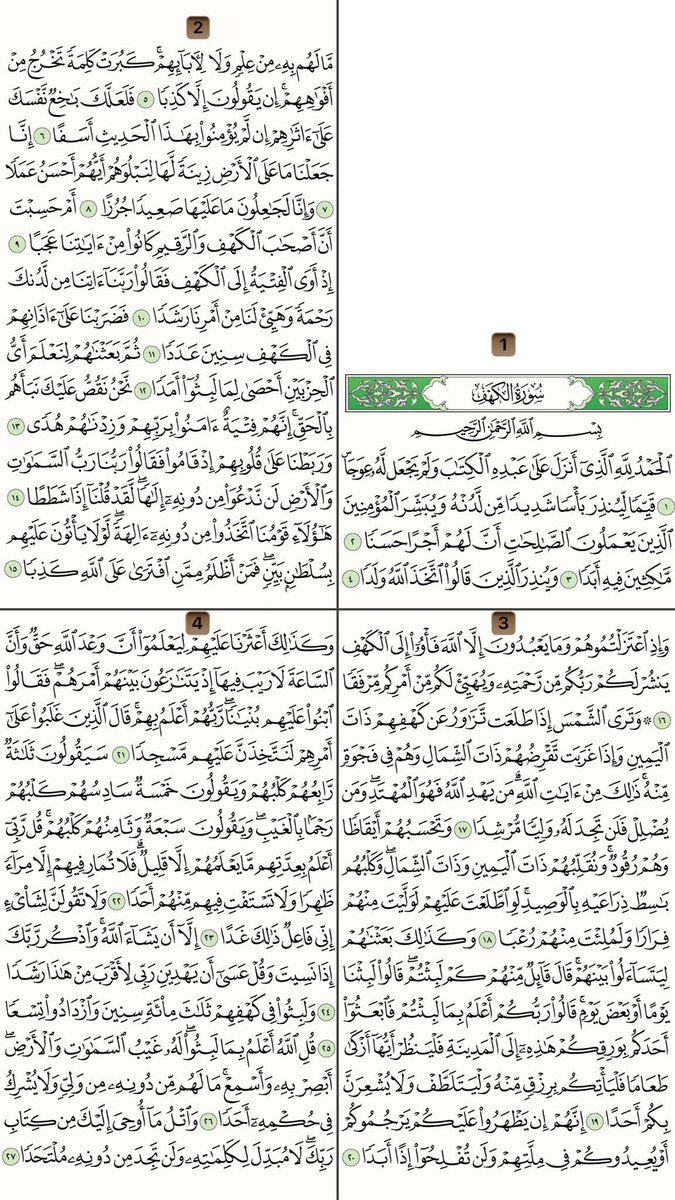 1
سُورَةُ الكَهْفِ
بِسْمِ ٱللَّهِ ٱلرَّحْمَٰنِ ٱلرَّحِيمِ
ٱلْحَمْدُ لِلَّهِ ٱلَّذِىٓ أَنزَلَ عَلَىٰ عَبْدِهِ ٱلْكِتَٰبَ وَلَمْ يَجْعَل لَّهُۥ عِوَجَاۜ
١ قَيِّمًا لِّيُنذِرَ بَأْسًا شَدِيدًا مِّن لَّدُنْهُ وَيُبَشِّرَ ٱلْمُؤْمِنِينَ
ٱلَّذِينَ يَعْمَلُونَ ٱلصَّٰلِحَٰتِ أَنَّ لَهُمْ أَجْرًا حَسَنًا ٢
مَّٰكِثِينَ فِيهِ أَبَدًا ٣ وَيُنذِرَ ٱلَّذِينَ قَالُوا۟ ٱتَّخَذَ ٱللَّهُ وَلَدًا ٤
2
مَّا لَهُم بِهِۦ مِنْ عِلْمٍ وَلَا لِـَٔابَآئِهِمْۚ كَبُرَتْ كَلِمَةً تَخْرُجُ مِنْ
أَفْوَٰهِهِمْۚ إِن يَقُولُونَ إِلَّا كَذِبًا ٥ فَلَعَلَّكَ بَٰخِعٌ نَّفْسَكَ
عَلَىٰٓ ءَاثَٰرِهِمْ إِن لَّمْ يُؤْمِنُوا۟ بِهَٰذَا ٱلْحَدِيثِ أَسَفًا ٦ إِنَّا
جَعَلْنَا مَا عَلَى ٱلْأَرْضِ زِينَةً لَّهَا لِنَبْلُوَهُمْ أَيُّهُمْ أَحْسَنُ عَمَلًا
٧ وَإِنَّا لَجَٰعِلُونَ مَا عَلَيْهَا صَعِيدًا جُرُزًا ٨ أَمْ حَسِبْتَ
أَنَّ أَصْحَٰبَ ٱلْكَهْفِ وَٱلرَّقِيمِ كَانُوا۟ مِنْ ءَايَٰتِنَا عَجَبًا ٩
إِذْ أَوَى ٱلْفِتْيَةُ إِلَى ٱلْكَهْفِ فَقَالُوا۟ رَبَّنَآ ءَاتِنَا مِن لَّدُنكَ
رَحْمَةً وَهَيِّئْ لَنَا مِنْ أَمْرِنَا رَشَدًا ١٠ فَضَرَبْنَا عَلَىٰٓ ءَاذَانِهِمْ
فِى ٱلْكَهْفِ سِنِينَ عَدَدًا ١١ ثُمَّ بَعَثْنَٰهُمْ لِنَعْلَمَ أَىُّ
ٱلْحِزْبَيْنِ أَحْصَىٰ لِمَا لَبِثُوٓا۟ أَمَدًا ١٢ نَّحْنُ نَقُصُّ عَلَيْكَ نَبَأَهُم
بِٱلْحَقِّۚ إِنَّهُمْ فِتْيَةٌ ءَامَنُوا۟ بِرَبِّهِمْ وَزِدْنَٰهُمْ هُدًى ١٣
وَرَبَطْنَا عَلَىٰ قُلُوبِهِمْ إِذْ قَامُوا۟ فَقَالُوا۟ رَبُّنَا رَبُّ ٱلسَّمَٰوَٰتِ
وَٱلْأَرْضِ لَن نَّدْعُوَا۟ مِن دُونِهِۦٓ إِلَٰهًاۖ لَّقَدْ قُلْنَآ إِذًا شَطَطًا ١٤
هَٰٓؤُلَآءِ قَوْمُنَا ٱتَّخَذُوا۟ مِن دُونِهِۦٓ ءَالِهَةًۖ لَّوْلَا يَأْتُونَ عَلَيْهِم
بِسُلْطَٰنٍۭ بَيِّنٍۖ فَمَنْ أَظْلَمُ مِمَّنِ ٱفْتَرَىٰ عَلَى ٱللَّهِ كَذِبًا ١٥
3
وَإِذِ ٱعْتَزَلْتُمُوهُمْ وَمَا يَعْبُدُونَ إِلَّا ٱللَّهَ فَأْوُۥٓا۟ إِلَى ٱلْكَهْفِ
يَنشُرْ لَكُمْ رَبُّكُم مِّن رَّحْمَتِهِۦ وَيُهَيِّئْ لَكُم مِّنْ أَمْرِكُم مِّرْفَقًا
١٦ ۞ وَتَرَى ٱلشَّمْسَ إِذَا طَلَعَت تَّزَٰوَرُ عَن كَهْفِهِمْ ذَاتَ
ٱلْيَمِينِ وَإِذَا غَرَبَت تَّقْرِضُهُمْ ذَاتَ ٱلشِّمَالِ وَهُمْ فِى فَجْوَةٍ
مِّنْهُۚ ذَٰلِكَ مِنْ ءَايَٰتِ ٱللَّهِۗ مَن يَهْدِ ٱللَّهُ فَهُوَ ٱلْمُهْتَدِۖ وَمَن
يُضْلِلْ فَلَن تَجِدَ لَهُۥ وَلِيًّا مُّرْشِدًا ١٧ وَتَحْسَبُهُمْ أَيْقَاظًا
وَهُمْ رُقُودٌۚ وَنُقَلِّبُهُمْ ذَاتَ ٱلْيَمِينِ وَذَاتَ ٱلشِّمَالِۖ وَكَلْبُهُم
بَٰسِطٌ ذِرَاعَيْهِ بِٱلْوَصِيدِۚ لَوِ ٱطَّلَعْتَ عَلَيْهِمْ لَوَلَّيْتَ مِنْهُمْ
فِرَارًا وَلَمُلِئْتَ مِنْهُمْ رُعْبًا ١٨ وَكَذَٰلِكَ بَعَثْنَٰهُمْ
لِيَتَسَآءَلُوا۟ بَيْنَهُمْۚ قَالَ قَآئِلٌ مِّنْهُمْ كَمْ لَبِثْتُمْۖ قَالُوا۟ لَبِثْنَا
يَوْمًا أَوْ بَعْضَ يَوْمٍۚ قَالُوا۟ رَبُّكُمْ أَعْلَمُ بِمَا لَبِثْتُمْ فَٱبْعَثُوٓا۟
أَحَدَكُم بِوَرِقِكُمْ هَٰذِهِۦٓ إِلَى ٱلْمَدِينَةِ فَلْيَنظُرْ أَيُّهَآ أَزْكَىٰ
طَعَامًا فَلْيَأْتِكُم بِرِزْقٍ مِّنْهُ وَلْيَتَلَطَّفْ وَلَا يُشْعِرَنَّ
بِكُمْ أَحَدًا ١٩ إِنَّهُمْ إِن يَظْهَرُوا۟ عَلَيْكُمْ يَرْجُمُوكُمْ
أَوْ يُعِيدُوكُمْ فِى مِلَّتِهِمْ وَلَن تُفْلِحُوٓا۟ إِذًا أَبَدًا ٢٠
4
وَكَذَٰلِكَ أَعْثَرْنَا عَلَيْهِمْ لِيَعْلَمُوٓا۟ أَنَّ وَعْدَ ٱللَّهِ حَقٌّ وَأَنَّ
ٱلسَّاعَةَ لَا رَيْبَ فِيهَآ إِذْ يَتَنَٰزَعُونَ بَيْنَهُمْ أَمْرَهُمْۖ فَقَالُوا۟
ٱبْنُوا۟ عَلَيْهِم بُنْيَٰنًاۖ رَّبُّهُمْ أَعْلَمُ بِهِمْۚ قَالَ ٱلَّذِينَ غَلَبُوا۟ عَلَىٰٓ
أَمْرِهِمْ لَنَتَّخِذَنَّ عَلَيْهِم مَّسْجِدًا ٢١ سَيَقُولُونَ ثَلَٰثَةٌ
رَّابِعُهُمْ كَلْبُهُمْ وَيَقُولُونَ خَمْسَةٌ سَادِسُهُمْ كَلْبُهُمْ
رَجْمًۢا بِٱلْغَيْبِۖ وَيَقُولُونَ سَبْعَةٌ وَثَامِنُهُمْ كَلْبُهُمْۚ قُل رَّبِّىٓ
أَعْلَمُ بِعِدَّتِهِم مَّا يَعْلَمُهُمْ إِلَّا قَلِيلٌۗ فَلَا تُمَارِ فِيهِمْ إِلَّا مِرَآءً
ظَٰهِرًا وَلَا تَسْتَفْتِ فِيهِم مِّنْهُمْ أَحَدًا ٢٢ وَلَا تَقُولَنَّ لِشَا۟ىْءٍ
إِنِّى فَاعِلٌ ذَٰلِكَ غَدًا ٢٣ إِلَّآ أَن يَشَآءَ ٱللَّهُۚ وَٱذْكُر رَّبَّكَ
إِذَا نَسِيتَ وَقُلْ عَسَىٰٓ أَن يَهْدِيَنِ رَبِّى لِأَقْرَبَ مِنْ هَٰذَا رَشَدًا
٢٤ وَلَبِثُوا۟ فِى كَهْفِهِمْ ثَلَٰثَ مِا۟ئَةٍ سِنِينَ وَٱزْدَادُوا۟ تِسْعًا
٢٥ قُلِ ٱللَّهُ أَعْلَمُ بِمَا لَبِثُوا۟ۖ لَهُۥ غَيْبُ ٱلسَّمَٰوَٰتِ وَٱلْأَرْضِۖ
أَبْصِرْ بِهِۦ وَأَسْمِعْۚ مَا لَهُم مِّن دُونِهِۦ مِن وَلِىٍّ وَلَا يُشْرِكُ
فِى حُكْمِهِۦٓ أَحَدًا ٢٦ وَٱتْلُ مَآ أُوحِىَ إِلَيْكَ مِن كِتَابِ
رَبِّكَۖ لَا مُبَدِّلَ لِكَلِمَٰتِهِۦ وَلَن تَجِدَ مِن دُونِهِۦ مُلْتَحَدًا ٢٧